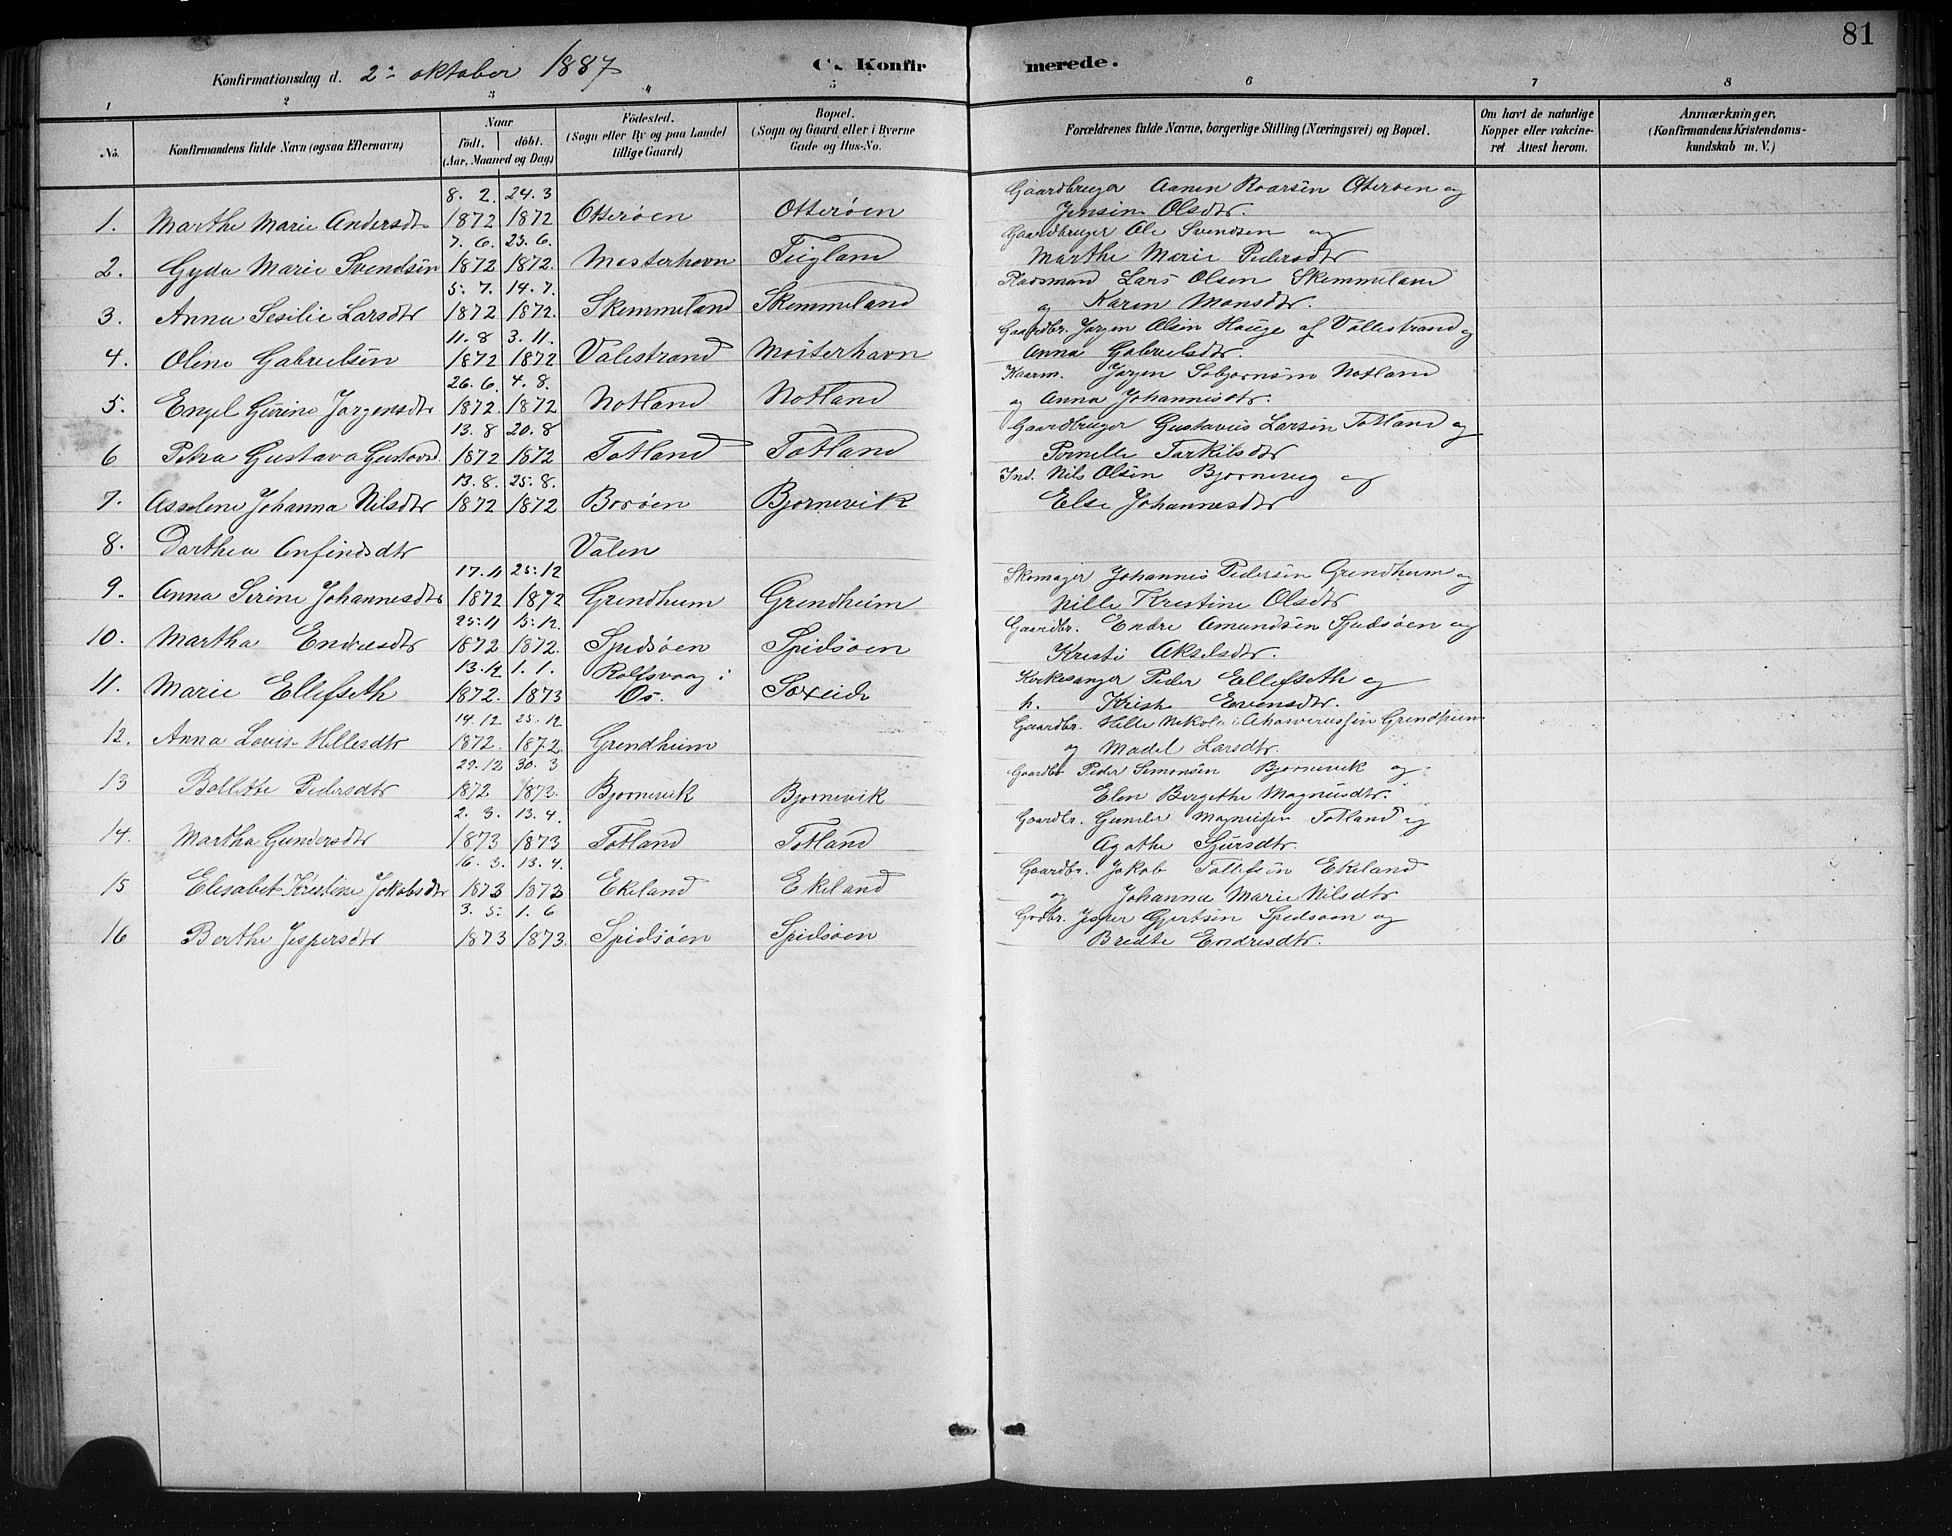 81
Konfirmationsdag d. 2: oktober 1887
C. Konfirmerede.
1 2 3 4 5 6 7 8
No. Konfirmandens fulde Navn (ogsaa Efternavn) Naar født, døbt. (Aar, Maaned og Dag) Fødested. (Sogn eller By og paa Landet tillige Gaard) Bopæl. (Sogn og Gaard eller i Byerne Gade og Hus-No. Forældrenes fulde Navne, borgerlige Stilling (Næringsvei) og Bopæl. Om havt de naturlige Kopper eller vakcineret Attest herom. Anmærkninger, (Konfirmandens Kristendomskundskab m. V.)
8. 2. 24. 3 Gaardbruger Aanen Roarsen Otterøen og
1. Marthe Marie Andersdt 1872 1872 Otterøen Otterøen Jensine Olsdtr.
7. 6. 23. 6. Gaardbruger Ole Svendsen og
2. Gyda Marie Svendsen 1872 1872. Mosterhavn Teigland Marthe Marie Pedersdtr
5. 7. 14. 7. Pladsmand Lars Olsen Skemmeland
3. Anna Sesilie Larsdtr 1872 1872. Skemmeland Skemmeland og Karen Monsdtr.
11. 8 3. 11. Gaardbr. Jørgen Olsen Hauge af Vallestrand og
4. Oline Gabrielsen 1872 1872 Valestrand Mosterhavn Anna Gabrielsdtr.
26. 6. 4. 8. Kaarm. Jørgen Notland
5. Engel Gurine Jørgensdtr 1872 1872 Notland Notland og Anna Johannisdtr.
13. 8 20. 8 Gaardbruger Gustavus Larsen Totland og
6 Petra Gustava Gustavsd 1872 1872 Totland Totland Pernelle Tarkilsdtr
13. 8. 25. 8. Ind. Nils Olsen Bjørneveg og
7. Asselene Johanna Nilsdtr 1872 1872 Borøen Bjørnevik Else Johannesdtr
8. Dorthea Anfindsdtr Valen
17. 11 25. 12 Skomager Johannes Pedersen Grendheim og
9. Anna Serine Johannesdtr 1872 1872 Grendheim Grendheim Nille Kristine Olsdtr
25. 11 15. 12. Gaardbr. Endre Amundsen Spidsøen og
10. Martha Endresdtr 1872 1872. Spidsøen Spidsøen Kristi Akselsdtr.
13. 12 1. 1. Rolfsvaag i Kirkesanger Peder Ellefseth og
11. Marie Ellefseth 1872. 1873 Os. Sexeide h. Kristi Evensdtr.
14. 12 25. 12 Gaardbr. Hille Nikolai Ahasverussen Grendheim
12. Anna Lovise Hillesdtr 1872. 1872. Grendheim og Madel Larsdtr
29. 12 30. 3 Gaardbr Peder Semonsen Bjørnevik og
13 Bollette Pedersdtr 1872 1873. Bjørnevik Bjørnevik Elen Bergithe Magnusdtr.
2. 3. 13. 4. Gaardbr. Gunder Magnussen Totland og
14. Martha Gundersdtr 1873 1873 Totland Totland Agathe Sjursdtr.
16. 3. 13. 4. Gaardbr. Jakob Tollefsen Ekeland
15 Elisabet Kristine Jakobsdtr 1873 1873 Ekeland Ekeland og Johanna Marie Nilsdtr
3. 5. 1. 6 Grdbr. Jesper Gjertsen Spidsøen og
16 Berthe Jespersdtr 1873 1873. Spidsøen Spidsøen Bredte Endresdtr.